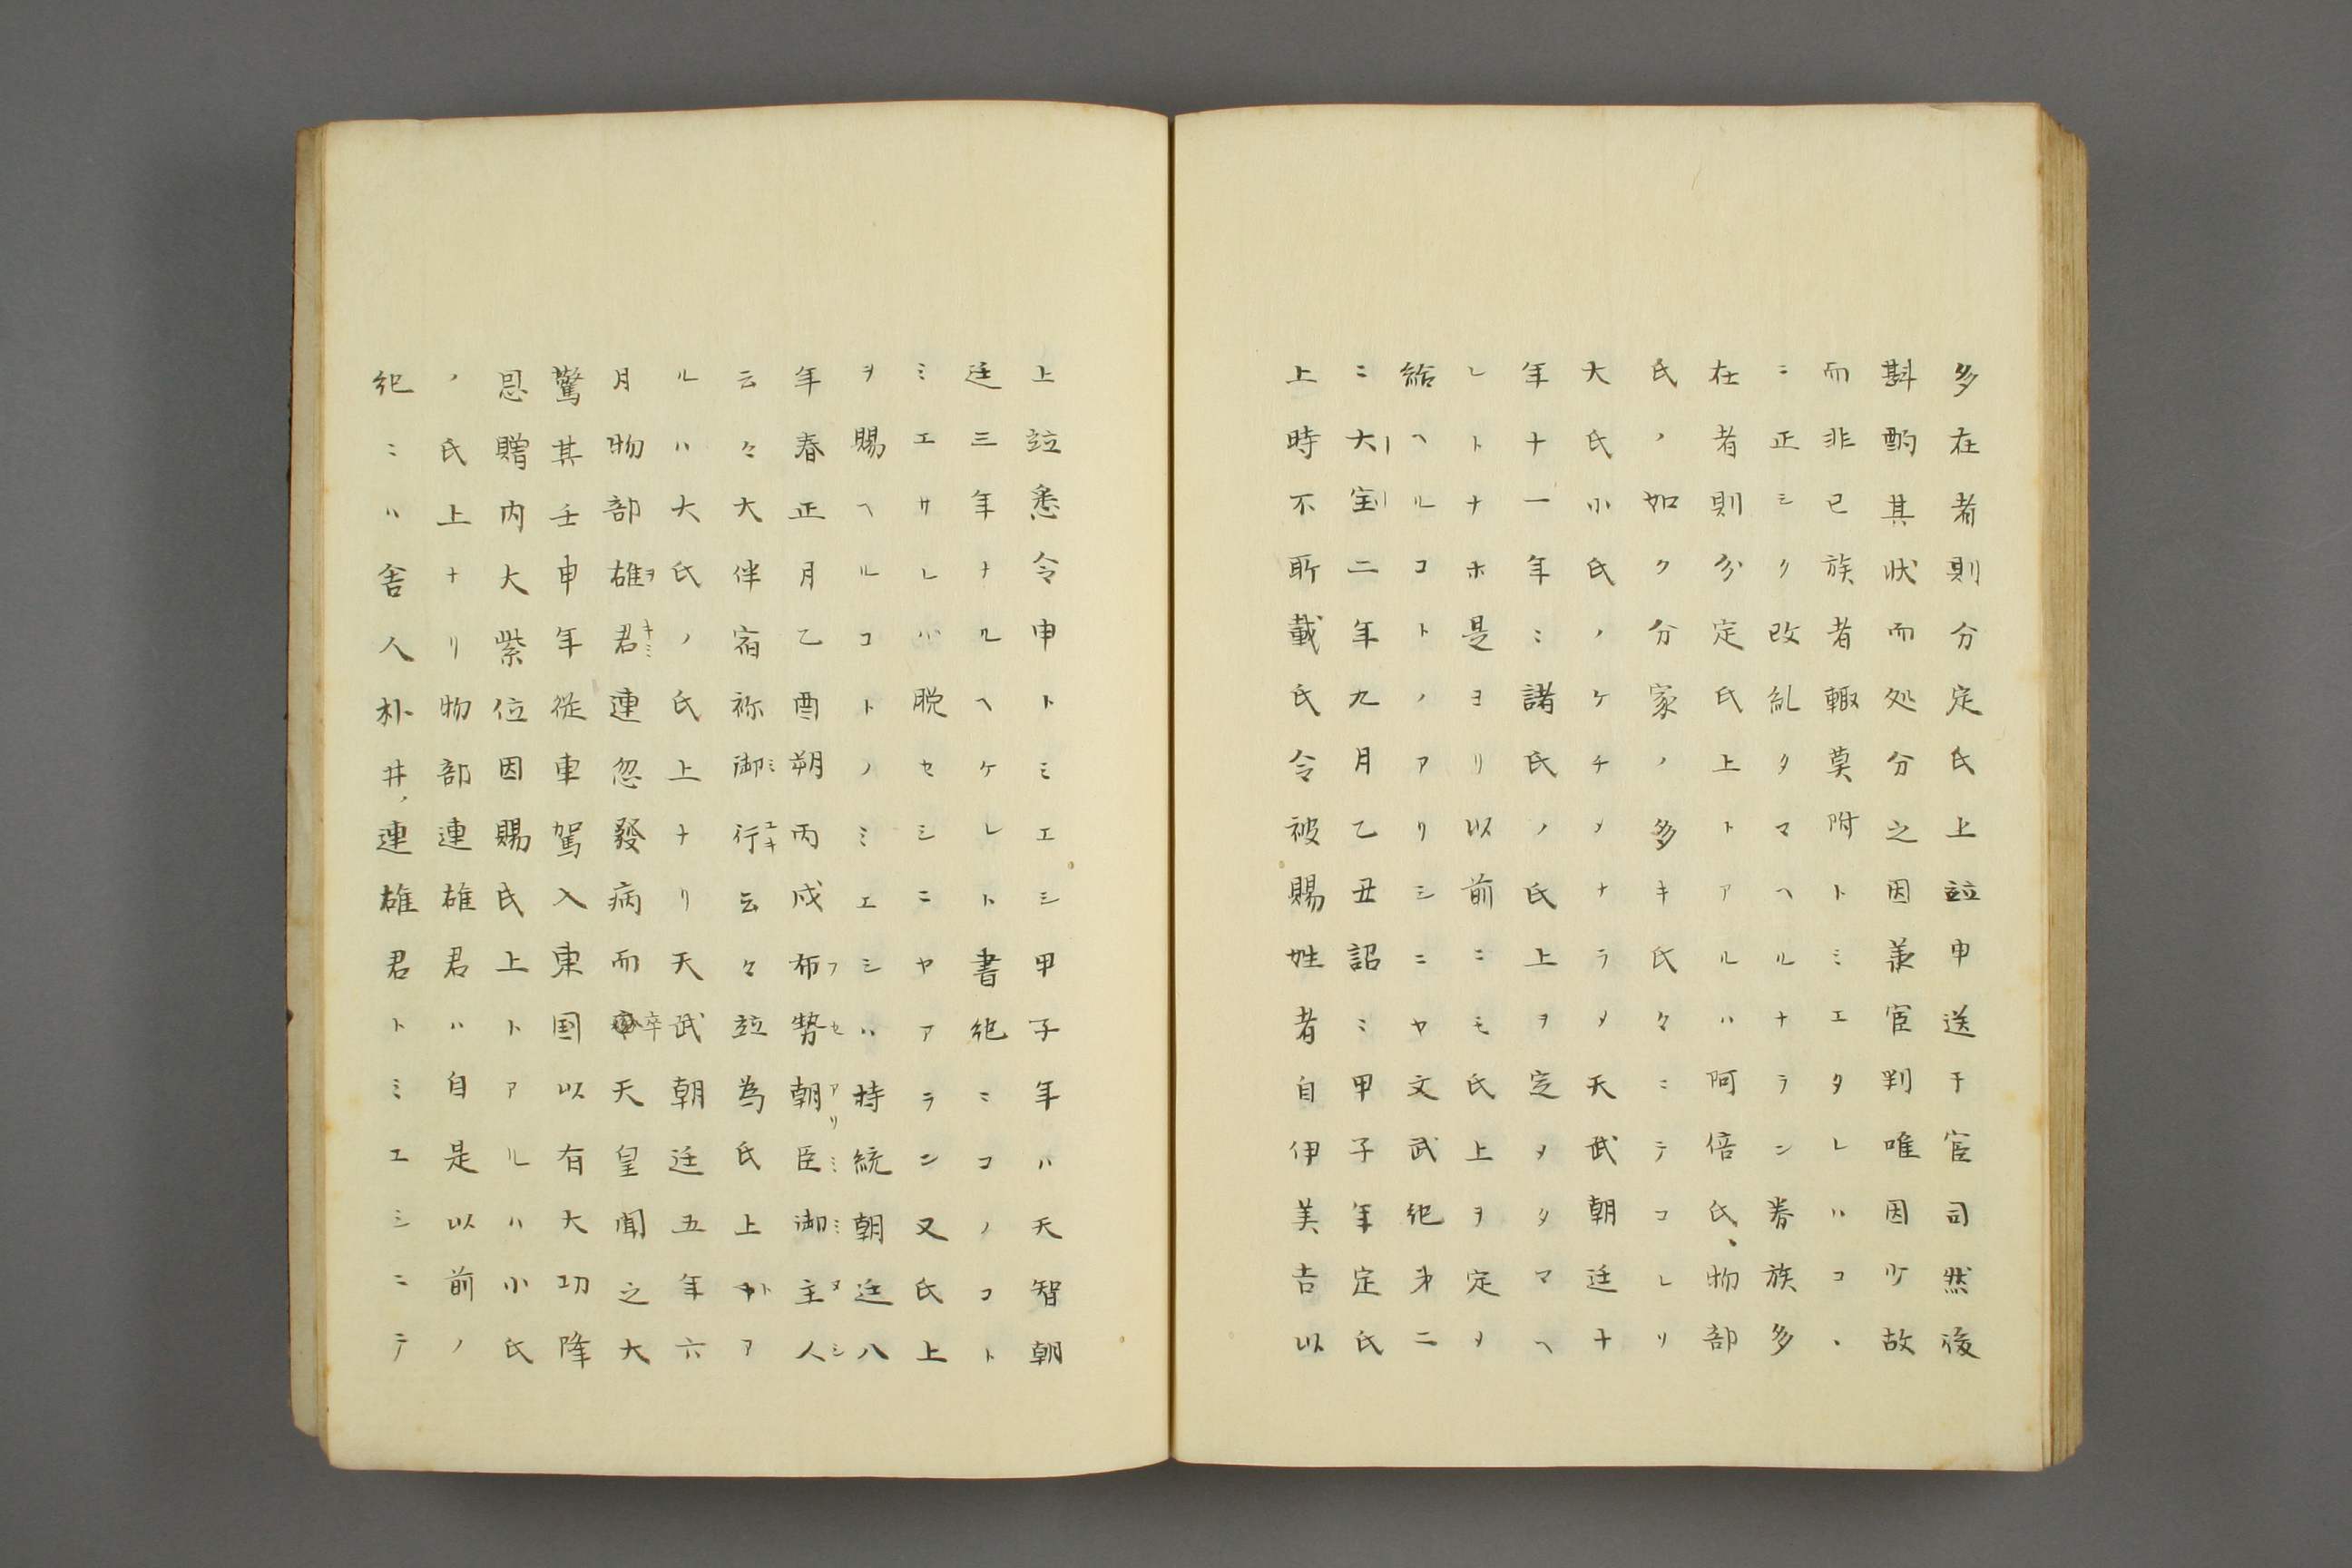 多在者則分定氏上並申送于官司然後
斟酌其状而処分之因羕官判唯因少故
而非已族者輙莫附トミエタレハコヽ
ニ正シク改糺タマヘルナラン眷族多
在者則分定氏上トアルハ阿倍氏、物部
氏ノ如ク分家ノ多キ氏々ニテコレリ
大氏小氏ノケチメナラメ天武朝廷十
年十一年ニ諸氏ノ氏上ヲ定メタマヘ
レトナホ是ヨリ以前ニモ氏上ヲ定メ
給ヘルコトノアリシニヤ文武紀第二
ニ大宝二年九月乙丑詔ミ甲子年定氏
上時不所載氏令被賜姓者自伊美吉以
上並悉令申トミエシ甲子年ハ天智朝
廷三年ナルヘケレト書紀ニコノコト
ミエサレハ脱セシニヤアラン又氏上
ヲ賜ヘルコトノミエシハ持統朝廷八
年春正月乙酉朔丙戌布フ勢セ朝アリ臣ミ御ミ主ヌ人シ
云々大伴宿祢御ミ行ユキ云々並為氏上トア
ルハ大氏ノ氏上ナリ天武朝廷五年六
月物部雄ヲ君キミ連忽發病而卒天皇聞之大
驚其壬申年從車駕入東国以有大功降
恩贈内大紫位因賜氏上トアルハ小氏
ノ氏上ナリ物部連雄君ハ自是以前ノ
紀ニハ舎人朴井ノ連雄君トミエシニテ